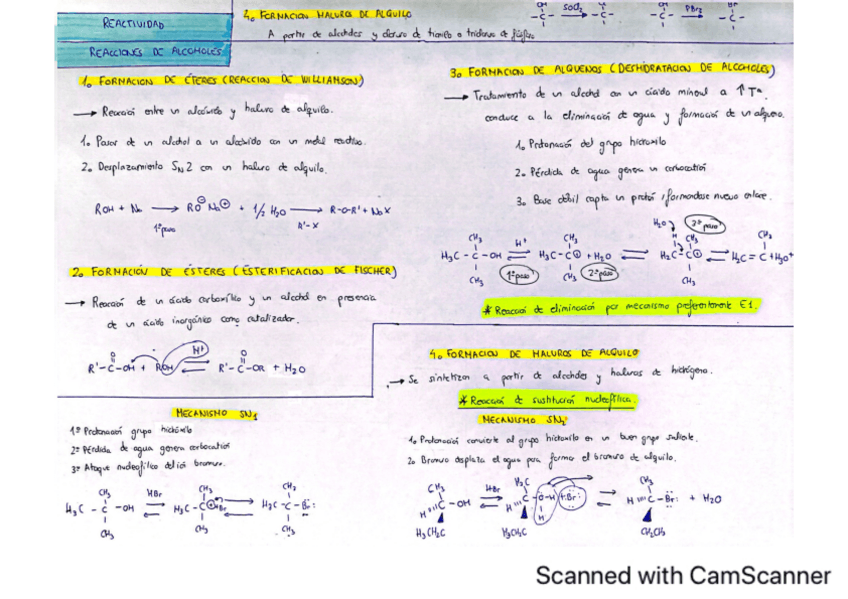 REACTIVIDAD
REACCIONES DE ALCOHOLES
4. FORMACION HALUROS DE ALQUILO
A partir de alcoholes y cloruro de tionilo o tribromo de fósforo
OH SOCl₂ Cl
-C- → -C-
OH PBr₃ Br
-C- → -C-
1. FORMACIÓN DE ÉTERES (REACCIÓN DE WILLIAMSON)
→ Reacción entre un alcóxido y haluro de alquilo.
1. Pasar de un alcohol a un alcóxido con un metal reactivo.
2. Desplazamiento SN2 con un haluro de alquilo.
ROH + Na → RO⊖ Na⊕ + 1/2 H₂O → R-O-R' + NaX
1º paso R'-X
2. FORMACIÓN DE ÉSTERES (ESTERIFICACIÓN DE FISCHER)
→ Reacción de un ácido carboxílico y un alcohol en presencia
de un ácido inorgánico como catalizador.
O H⁺ O
R'-C-OH + ROH ⇌ R'-C-OR + H₂O
3. FORMACIÓN DE ALQUENOS (DESHIDRATACIÓN DE ALCOHOLES)
→ Tratamiento de un alcohol con un ácido mineral a ↑Tª
conduce a la eliminación de agua y formación de un alqueno.
1. Protonación del grupo hidroxilo
2. Pérdida de agua genera un carbocatión
3. Base débil capta un protón formandose nuevo enlace.
H₂O 3º paso
CH₃ H⁺ CH₃ H CH₃ CH₃
H₃C-C-OH ⇌ H₃C-C⊕ + H₂O ⇌ H₂C-C⊕ ⇌ H₂C=C + H₃O⁺
CH₃ 1º paso CH₃ 2º paso CH₃
* Reacción de eliminación por mecanismo preferentemente E1.
4. FORMACION DE HALUROS DE ALQUILO
→ Se sintetizan a partir de alcoholes y haluros de hidrógeno.
* Reacción de sustitución nucleofílica.
MECANISMO SN1
1º Protonación grupo hidroxilo
2º Pérdida de agua genera carbocatión
3º Ataque nucleofílico del ión bromuro.
CH₃ HBr CH₃ CH₃
H₃C-C-OH ⇌ H₃C-C⊕ Br ⇌ H₃C-C-Br:
CH₃ CH₃ CH₃
MECANISMO SN2
1. Protonación convierte al grupo hidroxilo en un buen grupo saliente.
2. Bromuro desplaza el agua para formar el bromuro de alquilo.
CH₃ HBr H₃C CH₃
H C-OH ⇌ H C O-H + Br: ⇌ H C-Br: + H₂O
H
H₃CH₂C H₃CH₂C CH₂CH₃
Scanned with CamScanner